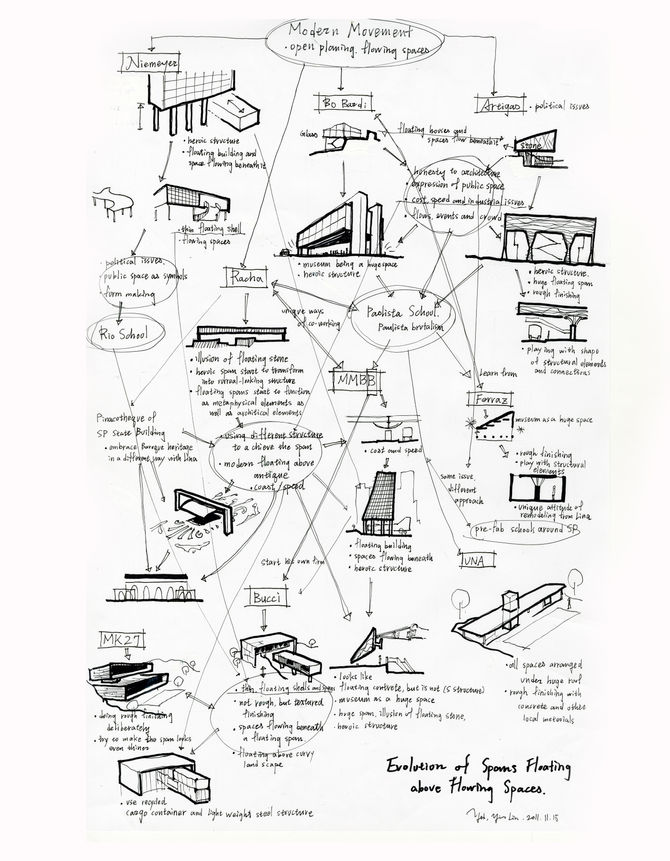 Modern Movement
• open planing. flowing spaces
Niemeyer
Bo Bardi
Artigas
• political issues
• heroic structure
• floating building and
space flowing beneath it
Glass
floating houses and
spaces flow beneath it
stone
• honesty to architecture
• expression of public space
• cost, speed and industrial issues
• flows, events and crowd
• thin floating shell
flowing spaces
• museum being a huge space
• heroic structure
• heroic structure.
• huge floating span
• rough finishing
• political issues,
public space as symbols
form making
Rio School
Racha
unique ways
of co-working
Paulista School.
Paulista brutalism
• playing with shape
of structural elements
and connections
• illusion of floating stone
• heroic span start to transform
into surreal-looking structure
• floating spans start to function
as metaphysical elements as
well as architical elements
MMBB
Learn from
Ferraz
museum as a huge space
Pinacotheque of
SP State Building
• embrace Baroque heritage
in a different way with Lina
• using different structure
to achieve the span
• modern floating above
antique
• coast/speed
• cost and speed
• rough finishing
• play with structural
elements
some issue
different
approach
• unique attitude of
remodeling from Lina
pre-fab schools around SP
• floating building
• spaces flowing beneath
• heroic structure
UNA
start his own firm
Bucci
MK27
• all spaces arranged
under huge roof
• rough finishing with
concrete and other
local materials
• doing rough finishing
deliberately
• try to make the span looks
even thiner
• thin floating shells and spans
• not rough, but textured
finishing
• spaces flowing beneath
a floating span
• floating above curvy
land scape
• looks like
floating concrete, but is not (S structure)
• museum as a huge space
• huge span, illusion of floating stone,
• heroic structure
• use recycled
cargo container and light weight steel structure
Evolution of Spans Floating
above Flowing Spaces.
Lin. 2011. 11. 15